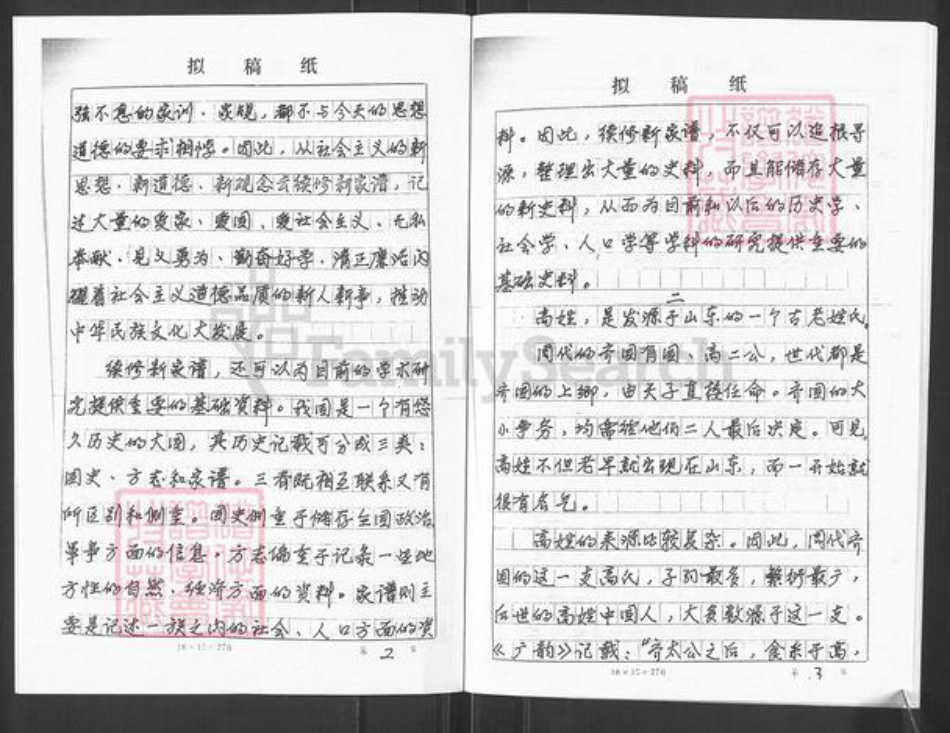 拟稿纸
强不息的家训、家规，都不与今天的思想
道德的要求相悖。因此，从社会主义的新
思想、新道德、新观念去续修新家谱，记
述大量的爱家、爱国、爱社会主义、无私
奉献、见义勇为、勤奋好学、清正廉洁闪
耀着社会主义道德品质的新人新事，推动
中华民族文化大发展。
续修新家谱，还可以为目前的学术研
究提供重要的基础资料。我国是一个有悠
久历史的大国，其历史记载可分成三类：
国史、方志和家谱。三者既相互联系又有
所区别和侧重。国史侧重于储存全国政治
军事方面的信息。方志偏重于记录一些地
方性的自然、经济方面的资料。家谱则主
要是记述一族之内的社会、人口方面的资
18×15=270
第 2 页
拟稿纸
料。因此，续修新家谱，不仅可以追根寻
源，整理出大量的史料，而且能储存大量
的新史料，从而为目前和以后的历史学、
社会学、人口学等学科的研究提供重要的
基础史料。
二
高姓，是发源于山东的一个古老姓氏。
周代的齐国有国、高二公，世代都是
齐国的上卿，由天子直接任命。齐国的大
小事务，均需经他们二人最后决定。可见
高姓不但老早就出现在山东，而一开始就
很有名气。
高姓的来源比较复杂。因此，周代齐
国的这一支高氏，子孙最多，繁衍最广，
后世的高姓中国人，大多数源于这一支。
《广韵》记载：“齐太公之后，食采于高，
18×15=270
第 3 页
FamilySearch